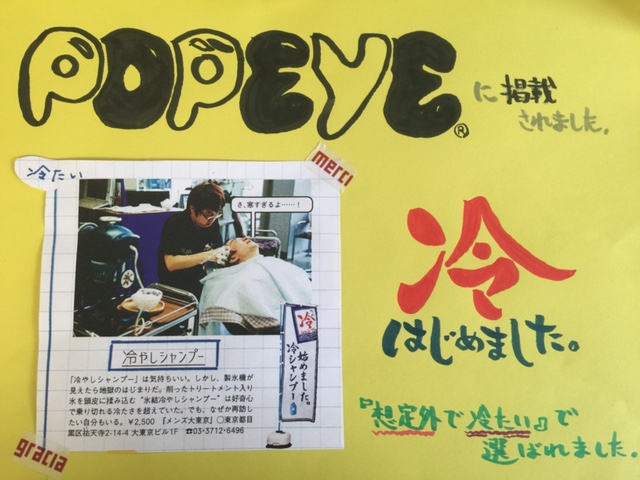 POPEYE®
に掲載
されました。
冷たい
merci
さ、寒すぎるよ……!
冷
始めました。
冷シャンプー
冷やしシャンプー
「冷やしシャンプー」は気持ちいい。しかし、製氷機が
見えたら地獄のはじまりだ。削ったトリートメント入り
氷を頭皮に揉み込む“氷結冷やしシャンプー”は好奇心
で乗り切れる冷たさを超えていた。でも、なぜか再訪し
たい自分もいる。¥2,500 『メンズ大東京』○東京都目
黒区祐天寺2-14-4 大東京ビル1F ☎03・3712・6496
gracia
冷
はじめました。
『想定外で冷たい』で
選ばれました。